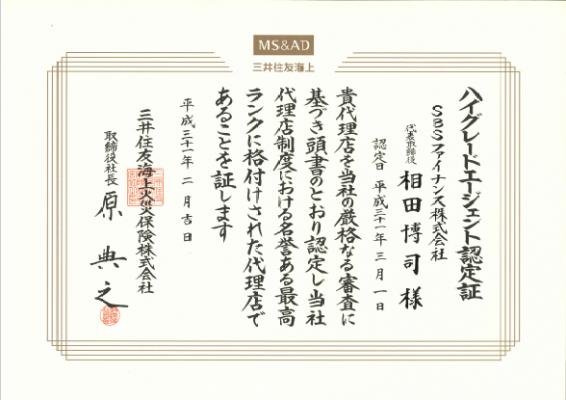 MS&AD
三井住友海上
ハイグレードエージェント認定証
SBSファイナンス株式会社
代表取締役 相田博司様
認定日 平成三十一年三月一日
貴代理店を当社の厳格なる審査に
基づき頭書のとおり認定し当社
代理店制度における名誉ある最高
ランクに格付けされた代理店で
あることを証します
平成三十一年二月吉日
三井住友海上火災保険株式会社
取締役社長 原典之